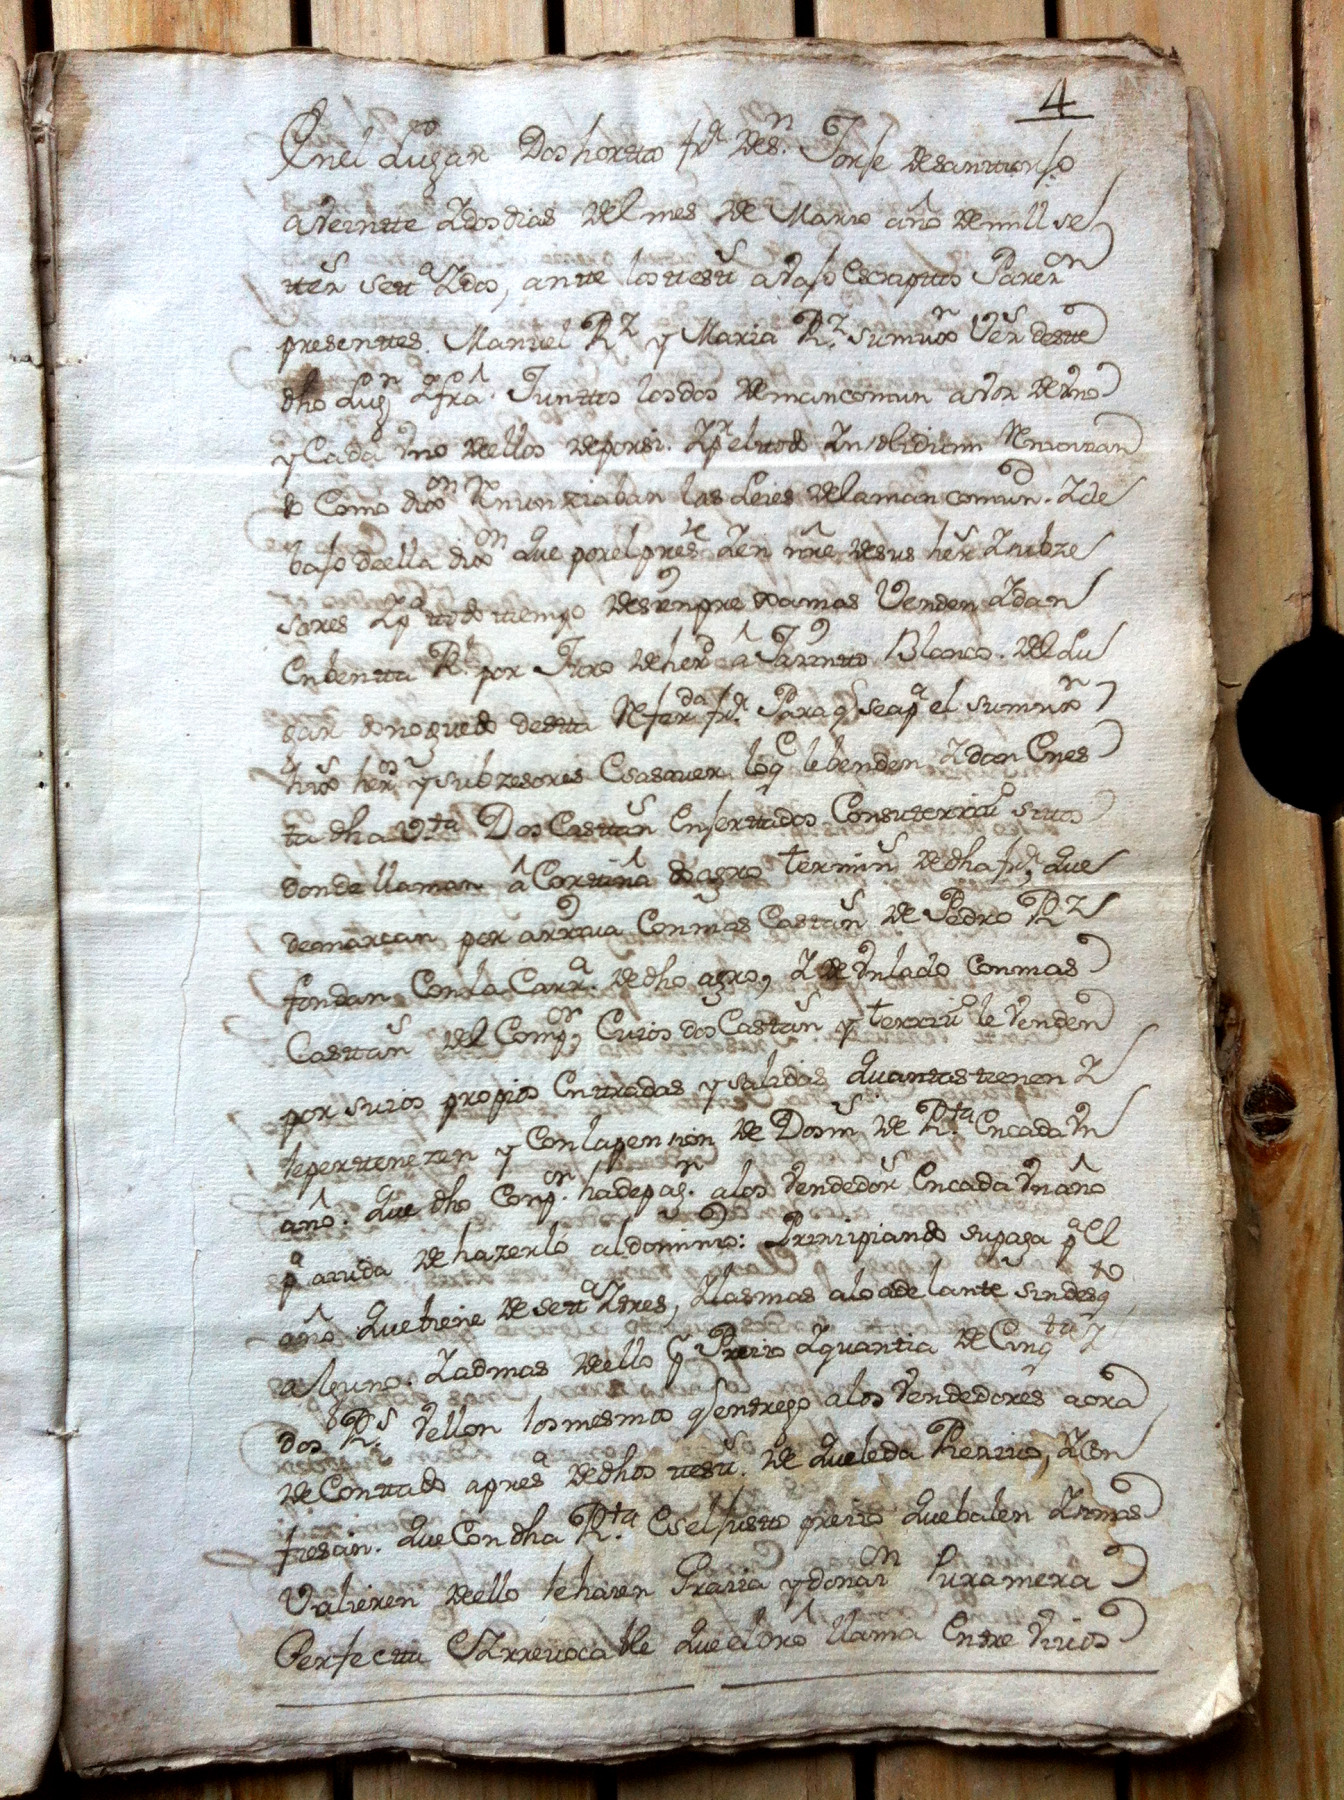 4
Enel Lugar Dos hortos frª. de Sn. Jorſe de santtiorſo
a Veintte Ydos dias del mes de Marzo año de mill se
tters settª Ydos, antte los testts avaſo Escripttos Pareron
presenttes. Manuel Rz y Maria Rz. su muxr Vezs destte
dho Lugr Yfrâ. Junttos los dos de mancomun a voz de Vno
y Cada Vno dellos de porsi. Yp el todo Ynsolidum Renoncian
do Como dixon Rnunziaban las Leies de la mancomund. Yde
baſo della dixon que por el preste Yen nre de sus hers Ysubze
sores Yp todo tiempo de sienpre xamas Venden Ydan
En bentta Rl. por Juro de herd â Jazintto Blanco. del Lu
gar do noguedo destta Referda frª. Para q sea pª el su muxr
hixos hers y subzesores Es a saver loq le benden Ydan En es
ta dha Vta Dos Casttañs Enſerttados Con su territtº sittos
donde llaman â Corttiña do agro terminos de dha frª, que
demarcan por arriva Con mas Casttañs de Pedro Rz
fondan Con la Carrª. de dho agro, Y de Vn lado con mas
Casttañs del Compor, Cuios dos Castañs y territº le Venden
por suios propios Enttradas y salidas quanttas tienen Y
le perttenezen y Con la pension de Dos ms de Rta En cada Vn
año. que dho Compor. ha de pagr. a los Vendedors En cada Vn año
pª aiuda de hazerlo al dominio: Prinzipiando su paga pª El
año que biene de settª Ytres, Y las mas a lo adelante sin desqto
alguno. Yadmas dello p Prezio Yquantia de Cinqta Y
dos Rs. Vellon los mesmos q entrego a los Vendedores aora
de Conttado a presª de dhos testts. de que le da Rezivo, Y con
fiesan. que Con dha Rta. Es el justo prezio que balen Y si mas
Valieren dello le hazen Grazia y donazn Pura mera
Perfectta E Yrrevocable que el dro llama Entre Vivos